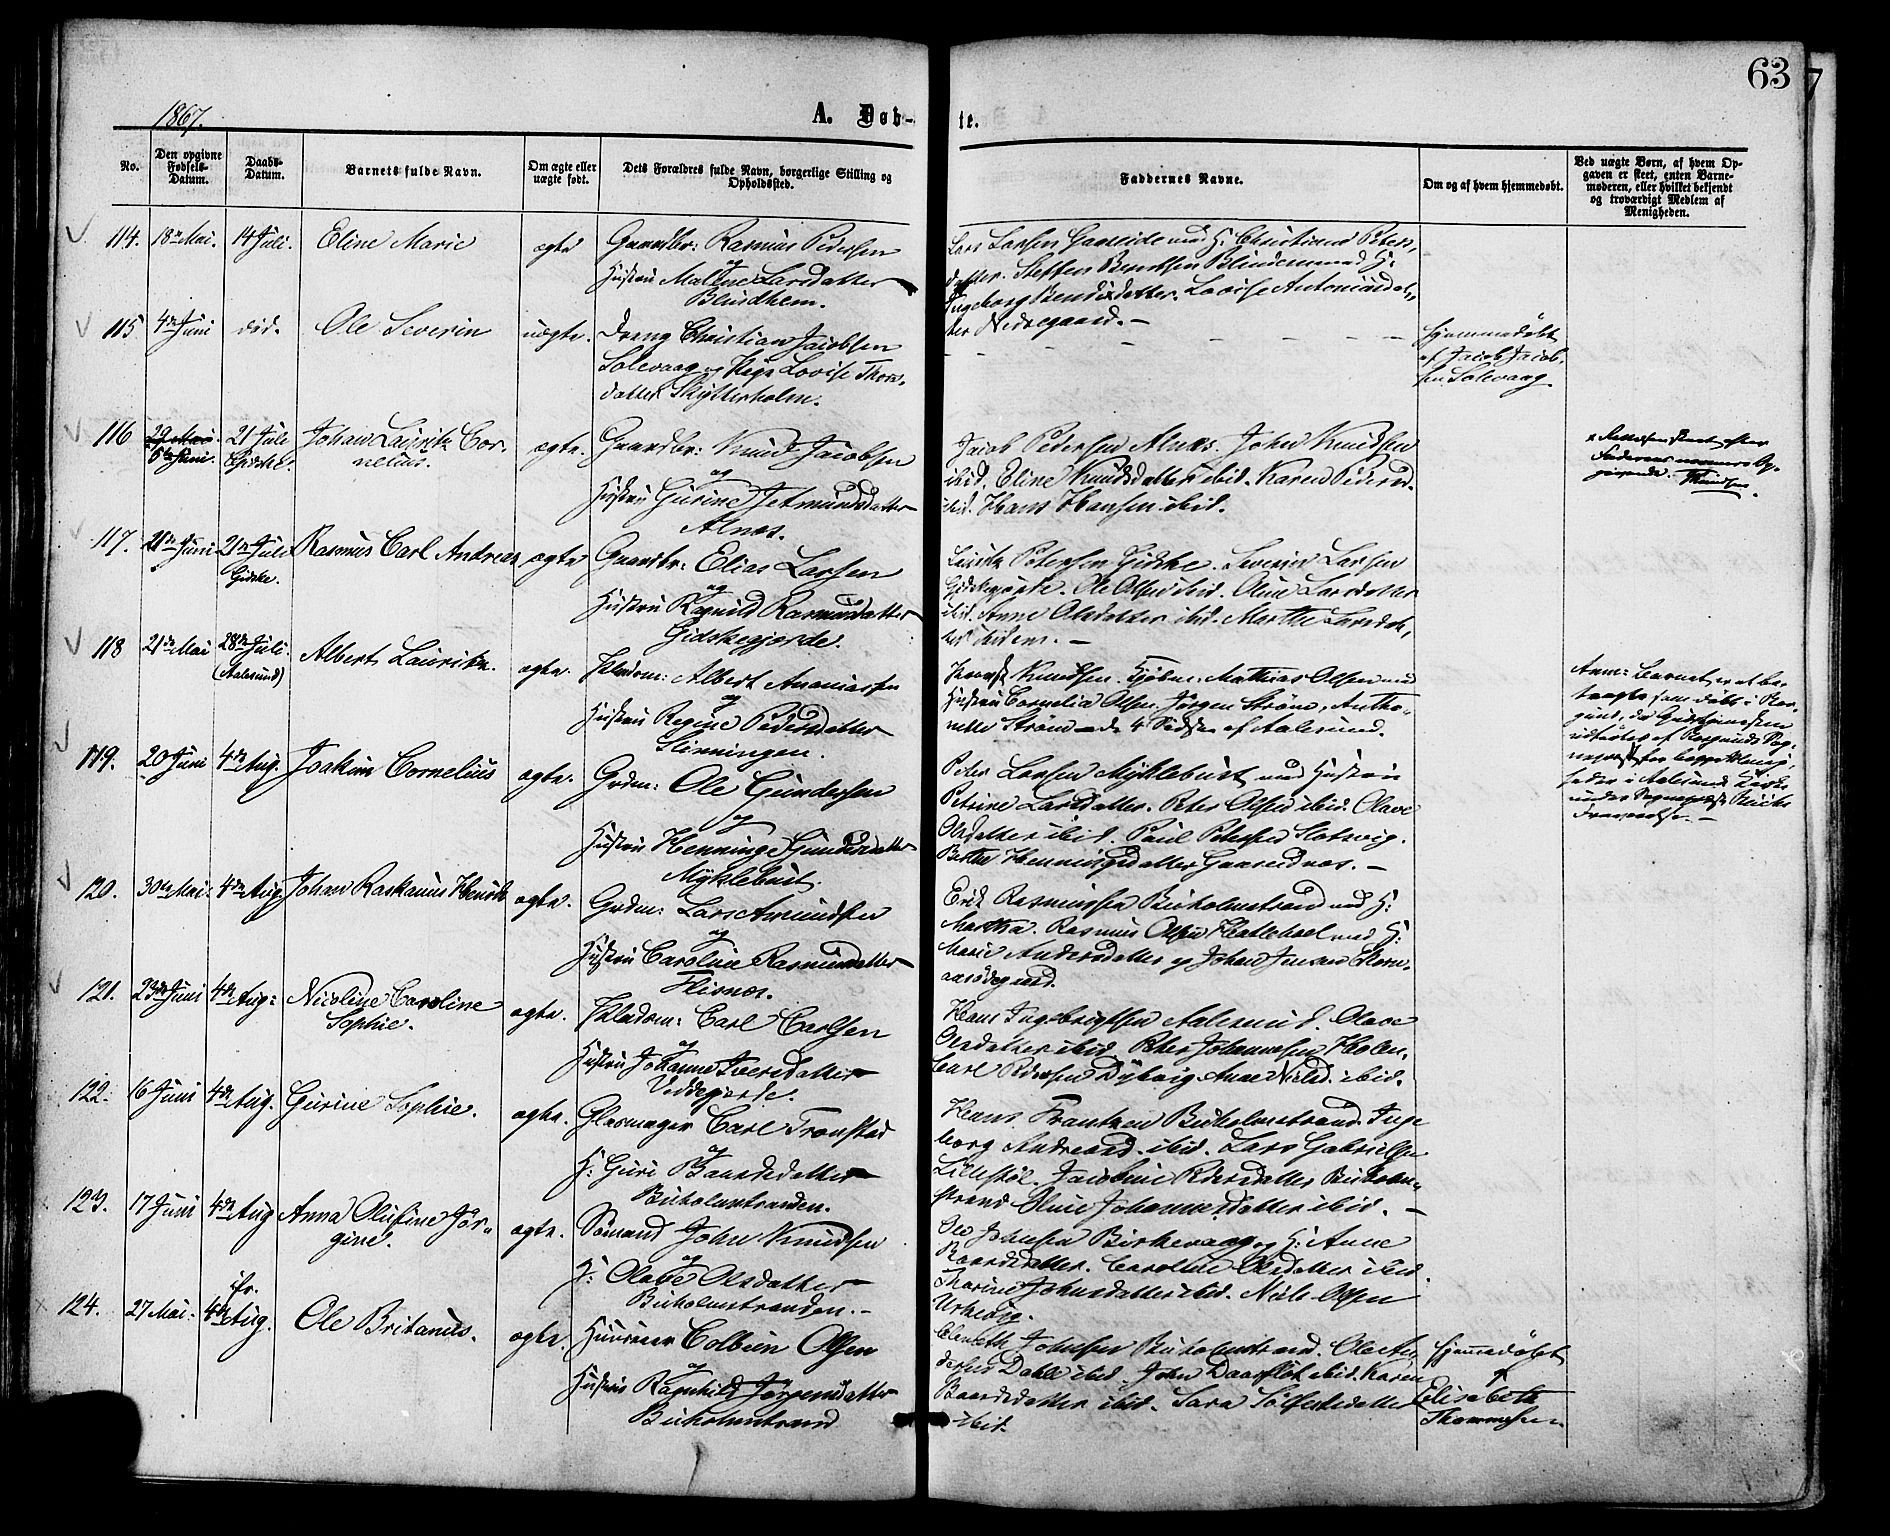 63
7
1867.
A. Døb-
te.
No.
Den opgivne
Fødsels-
Datum.
Daabs-
Datum.
Barnets fulde Navn.
Om ægte eller
uægte født.
Dets Forældres fulde Navn, borgerlige Stilling og
Opholdssted.
Faddernes Navne.
Om og af hvem hjemmedøbt.
Ved uægte Børn, af hvem Op-
gaven er skeet, enten Barne-
moderen, eller hvilket bekjendt
og troværdigt Medlem af
Menigheden.
114. 18de Mai. 14 Juli. Eline Marie ægte Gaardbr: Rasmus Pedersen
og
Hustru Malene Larsdatter
Blindhem.
Lars Larsen Gaaseide med H. Christiane Peters
datter. Steffen Berntsen Blindem med H:
Ingeborg Bendixdatter. Lovise Antonisdat
ter Nedregaard. -
115. 4de Juni død. Ole Severin uægte. Dreng Christian Jacobsen
Solevaag og Pige Lovise Thors-
datter Skytterholm.
Hjemmedøbt
af Jacob Jacob-
sen Solevaag
116 29 Mai. 21 Juli Johan Lauritz Cor- ægte. Gaardbr: Knud Jacobsen
5te Juni. Giske. nelius.
og
Hustru Gurine Jetmundsdatter
Alnæs.
Jacob Pedersen Alnæs. John Knudsen
ibid. Eline Knudsdatter ibid. Karen Pedersd.
ibid. Hans Hansen ibid.
117. 21de Juni 21de Juli Rasmus Carl Andreas ægte Gaardbr: Elias Larsen
Gidske.
og
Hustru Ragnild Rasmusdatter
Gidskegjerde.
Lauritz Petersen Gidske. Severin Larsen
Gidskegjerde. Ole Olsen ibid. Oline Larsdatter
ibid. Anne Olsdatter ibid. Marthe Larsdat-
ter ibidem. -
118 21de Mai 28de Juli. Albert Lauritz. ægte. Huusm: Albert Ananiassen
(Aalesund)
og
Hustru Regine Pedersdatter
Slinningen.
Knudsen. Mathias Olsen med
Hustru Cornelia Olsen. Jørgen Strøm, Antho-
nette Strøm af Aalesund.
Anm: Barnet er at be-
tragte som døbt i Bor-
gund, da
119. 20 Juni 4de Aug. Joakim Cornelius ægte. Grdm: Ole Gundersen
og
Hustru Henninge Gundersdatter
Myklebust.
Peter Larsen Myklebust med Hustru
Petrine Larsdatter. Peter Olsen ibid. Olave
Olsdatter ibid. Paul Petersen Slotsvig.
Berthe Henningsdatter Gaasednæs. -
120. 30te Mai. 4de Aug. Johan Raskanus Henrik ægte. Grdm: Lars Amundsen
og
Hustru Caroline Rasmusdatter
Flisnæs.
Erik Rasmussen Buholmstrand med H:
Martha. Rasmus Olsen Hatlehoel med H:
Marie Andersdatter og Johan Jensen
121. 23de Juni 4de Aug: Nicoline Caroline ægte. Huusm: Carl Carlsen
Sophie.
og
Hustru Johanne Iversdatter
Veddegjerde.
Hans Ingebrigtsen Aalesund. Olave
Olsdatter ibid. Peter Johannesen Holen.
Carl Pedersen Dybvig. Anne Nielsd. ibid.
122. 16 Juni 4de Aug. Gurine Sophie. ægte. Glasmager Carl Tronstad
og
H: Guri Baardsdatter
Buholmstranden.
Hans Frantzen Buholmstrand. Inge
borg Andreasd. ibid. Lars Gabrielsen
Lillestøl. Jacobine Pedersdatter Buholm-
strand. Oline Johannesdatter ibid. -
123. 17 Juni 4de Aug Anna Olufine Jør- ægte. Sømand John Knudsen
gine.
og
H: Olave Olsdatter
Buholmstranden. -
Ole Johnsen Birkevaag og H: Anne
Baardsdatter. Caroline Olsdatter ibid.
Thorine Johnsdatter ibid. Niels Olsen
124. 27 Mai. 4de Aug. Ole Britanus. ægte. Huusmer Colbein Olsen
og
Hustru Ragnhild Jørgensdatter
Buholmstrand
Johnsen Buholmstrand. Ole An
dersen Dahle ibid. John Daarfløt ibid. Karen
Baardsdatter ibid. Sara Sølfestsdatter
ibid.
Hjemmedøbt
Elisabeth
Thommesen.